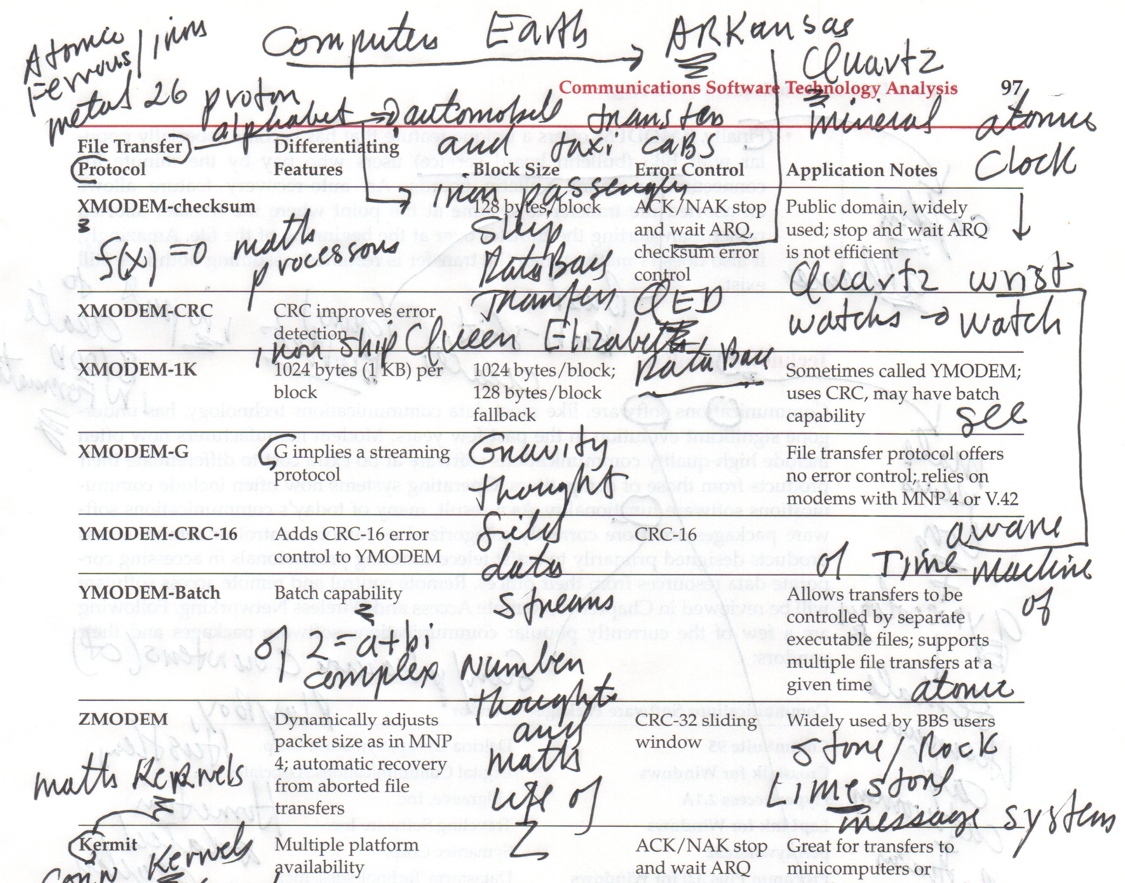 Atomic
Ferrous/irons
metal 26 proton
Computers Earth → ARKansas
Quartz
Communications Software Technology Analysis 97
alphabet → automobile transfer mineral atomic
and taxi cabs Clock
File Transfer Protocol
Differentiating Features
Block Size
Error Control
Application Notes
iron passengers
XMODEM-checksum
128 bytes/block
ACK/NAK stop
and wait ARQ,
checksum error
control
Public domain, widely
used; stop and wait ARQ
is not efficient
f(x) → math
processors
ship
DataBase
transfers QED
Quartz wrist
watchs → watch
XMODEM-CRC
CRC improves error
detection
iron ship Queen Elizabeth
DataBase
XMODEM-1K
1024 bytes (1 KB) per
block
1024 bytes/block;
128 bytes/block
fallback
Sometimes called YMODEM;
uses CRC, may have batch
capability
see
XMODEM-G
G implies a streaming
protocol
Gravity
thought
File transfer protocol offers
no error control; relies on
modems with MNP-4 or V.42
YMODEM-CRC-16
Adds CRC-16 error
control to YMODEM
field
data
CRC-16
aware
of Time machine
of
YMODEM-Batch
Batch capability
streams
Allows transfers to be
controlled by separate
executable files; supports
multiple file transfers at a
given time
atomic
of Z=a+bi
complex number
thoughts
and
maths
use of
Z
ZMODEM
Dynamically adjusts
packet size as in MNP
4; automatic recovery
from aborted file
transfers
CRC-32 sliding
window
Widely used by BBS users
stone/Rock
Limestone
message system
math Kernels
Kermit
Multiple platform
availability
ACK/NAK stop
and wait ARQ
Great for transfers to
minicomputers or
Corn Kernels